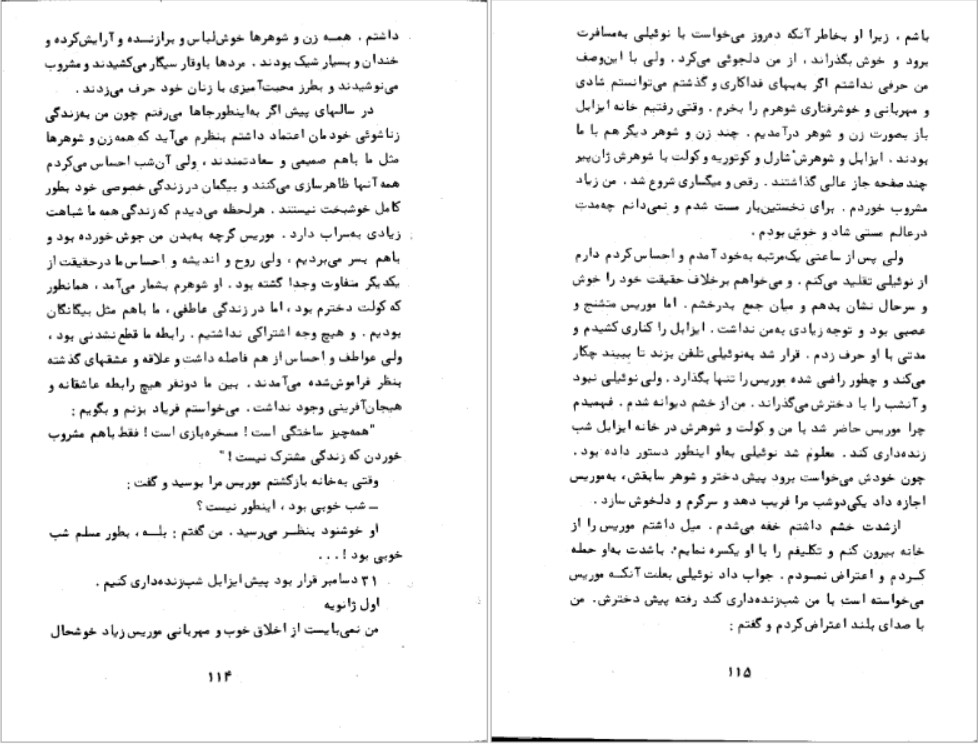 داشتم . همـه زن و شوهرها خوش‌لباس و برازنـده و آرایش‌کرده و
خندان و بسیار شیک بودند . مردها باوقار سیگار می‌کشیدند و مشروب
می‌نوشیدند و بطرز محبت‌آمیزی با زنان خود حرف می‌زدند .
در سالهای پیش اگر به‌اینطورجاها می‌رفتم چون من به‌زندگی
زناشوئی خودمان اعتماد داشتم بنظرم می‌آید که همه‌زن و شوهرها
مثل ما باهم صمیمی و سعادتمندند ، ولی آن‌شب احساس می‌کردم
همه آنها ظاهرسازی می‌کنند و بیگمان درزندگی خصوصی خود بطور
کامل خوشبخت نیستند . هرلحظه می‌دیدم که زندگی همه ما شباهت
زیادی به‌سراب دارد . موریس گرچه به‌بدن من جوش خورده بود و
باهم بسر می‌بردیم ، ولی روح و اندیشه و احساس ما درحقیقت از
یکدیگر متفاوت وجدا گشته بود . او شوهرم بشمار می‌آمد ، همانطور
که کولت دخترم بود ، اما درزندگی عاطفی ، ما باهم مثل بیگانگان
بودیم . و هیچ وجه اشتراکی نداشتیم . رابطه ما قطع‌نشدنی بود ،
ولی عواطف و احساس از هم فاصله داشت و علاقه و عشقهای گذشته
بنظر فراموش‌شده می‌آمدند . بین ما دونفر هیچ رابطه عاشقانه و
هیجان‌آفرینی وجود نداشت . می‌خواستم فریاد بزنم و بگویم :
"همه‌چیز ساختگی است ! مسخره‌بازی است ! فقط باهم مشروب
خوردن که زندگی مشترک نیست ! "
وقتی به‌خانه بازگشتم موریس مرا بوسید و گفت :
ــ شب خوبی بود ، اینطور نیست ؟
او خوشنود بنظـر می‌رسید . من گفتم : بلـه ، بطور مسلم شب
خوبی بود ! . . .
۳۱ دسامبر قرار بود پیش ایزابل شب‌زنده‌داری کنیم .
اول ژانویه
من نمی‌بایست از اخلاق خوب و مهربانی موریس زیاد خوشحال
۱۱۴
باشم ، زیرا او بخاطر آنکه ده‌روز می‌خواست با نوئیلی به‌مسافرت
برود و خوش بگذراند ، از من دلجوئی می‌کرد . ولی با این‌وصف
من حرفی نداشتم اگر به‌بهای فداکاری و گذشتم می‌توانستم شادی
و مهربانی و خوشرفتاری شوهرم را بخرم . وقتی رفتیم خانه ایزابل
باز بصورت زن و شوهر درآمدیم . چند زن و شوهر دیگر هم با ما
بودند . ایزابل و شوهرش شارل و کوتوریه و کولت با شوهرش ژان‌پیر
چند صفحه جاز عالی گذاشتند . رقص و میگساری شروع شد . من زیاد
مشروب خوردم . برای نخستین‌بار مست شدم و نمی‌دانم چه‌مدت
درعالم مستی شاد و خوش بودم .
ولی پس از ساعتی یک‌مرتبه به‌خود آمدم و احساس کردم دارم
از نوئیلی تقلید می‌کنم . و می‌خواهم برخلاف حقیقت خود را خوش
و سرحال نشان بدهم و میان جمع بدرخشم . اما موریس متشنج و
عصبی بود و توجه زیادی به‌من نداشت . ایزابل را کناری کشیدم و
مدتی با او حرف زدم . قرار شد به‌نوئیلی تلفن بزند تا ببیند چکار
می‌کند و چطور راضی شده موریس را تنها بگذارد . ولی نوئیلی نبود
و آنشب را با دخترش می‌گذراند . من از خشم دیوانه شدم . فهمیدم
چرا موریس حاضر شد با من و کولت و شوهرش در خانه ایزابل شب
زنده‌داری کند . معلوم شد نوئیلی به‌او اینطور دستور داده بود .
چون خودش می‌خواست برود پیش دختر و شوهر سابقش ، به‌موریس
اجازه داد یکی‌دوشب مرا فریب دهد و سرگرم و دلخوش سازد .
ازشدت خشم داشتم خفه می‌شدم . میل داشتم موریس را از
خانه بیرون کنم و تکلیفم را با او یکسره نمایم . باشدت به‌او حمله
کـردم و اعتراض نمـودم . جواب داد نوئیلی بعلت آنکـه موریس
می‌خواسته است با من شب‌زنده‌داری کند رفته پیش دخترش . من
با صدای بلند اعتراض‌کردم و گفتم :
۱۱۵